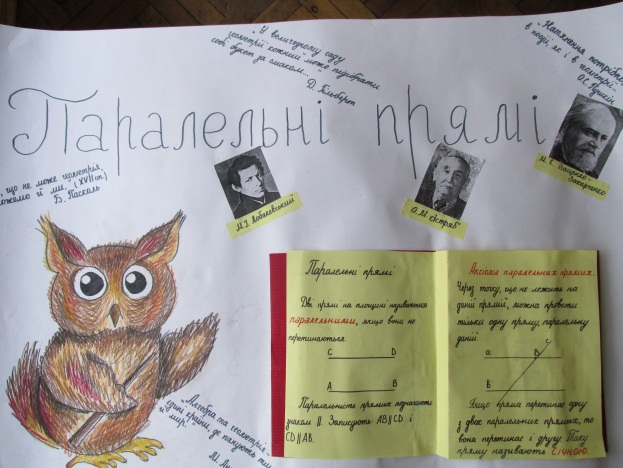 „У величезному саду
геометрії кожний може підібрати
собі букет за смаком...
Д. Гільберт
„Натхнення потрібне
в поезії, як і в геометрії.
О.С. Пушкін
Паралельні прямі
що не може геометрія,
можемо й ми." (XVII ст.)
Б. Паскаль
М.І. Лобачевський
О.М. Астряб
М. Є. Ващенко-
Захарченко
Паралельні прямі
Дві прямі на площині називаються
паралельними, якщо вони не
перетинаються.
C D
A B
Паралельність прямих позначають
знаком ||. Записують AB||CD і
CD||AB.
Аксіома паралельних прямих.
Через точку, що не лежить на
даній прямій, можна провести
тільки одну пряму, паралельну
даній.
c
a B
Б
Якщо пряма перетинає одну
з двох паралельних прямих, то
вона перетинає і другу. Таку
пряму називають Січною
„Алгебра та геометрія -
єдині країни, де панують тиша
й мир.